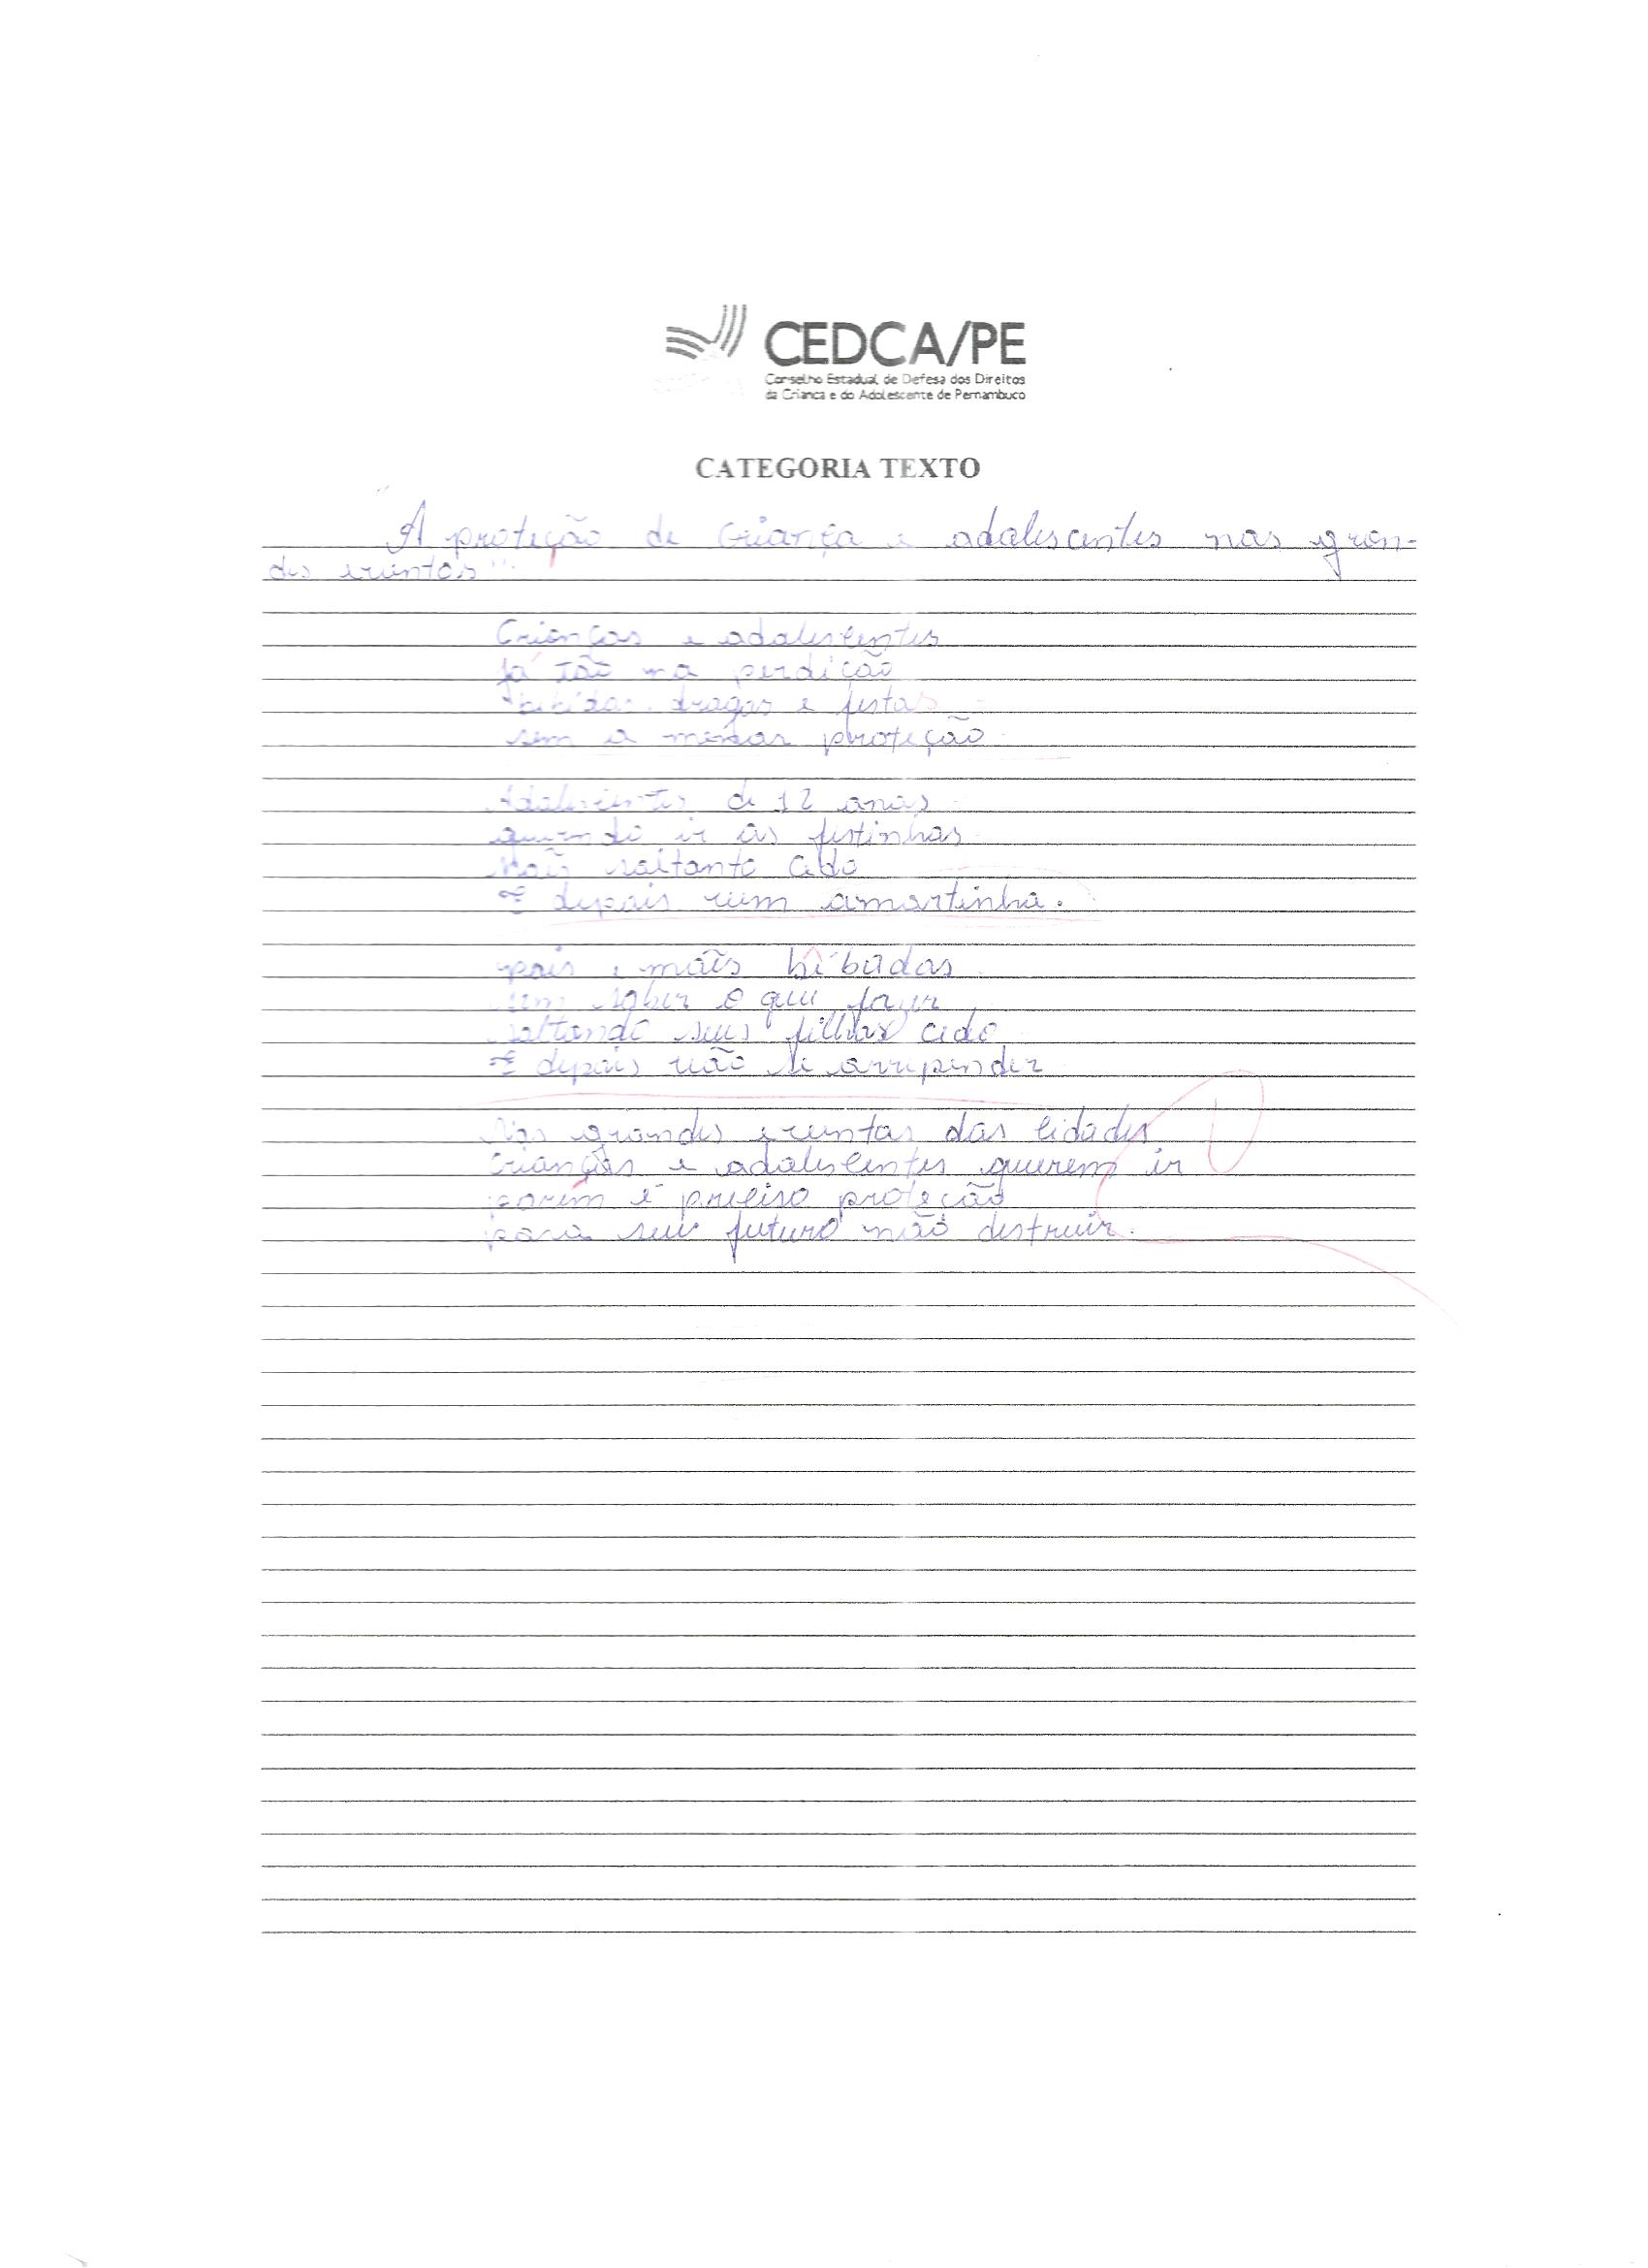 CEDCA/PE
Conselho Estadual de Defesa dos Direitos
da Criança e do Adolescente de Pernambuco
CATEGORIA TEXTO
"A proteção de criança e adolescentes nos gran-
des eventos"
Crianças e adolescentes
já tão na perdição
bebidas, drogas e festas
sem a menor proteção
Adolescentes de 12 anos
querendo ir às festinhas
Mais soltando cedo
E depois vem amartinha.
pais e mães bêbados
sem saber o que fazer
soltando seus filhos cedo
E depois não se arrepender
Nos grandes eventos das cidades
crianças e adolescentes querem ir
porém é preciso proteção
para seu futuro não destruir.